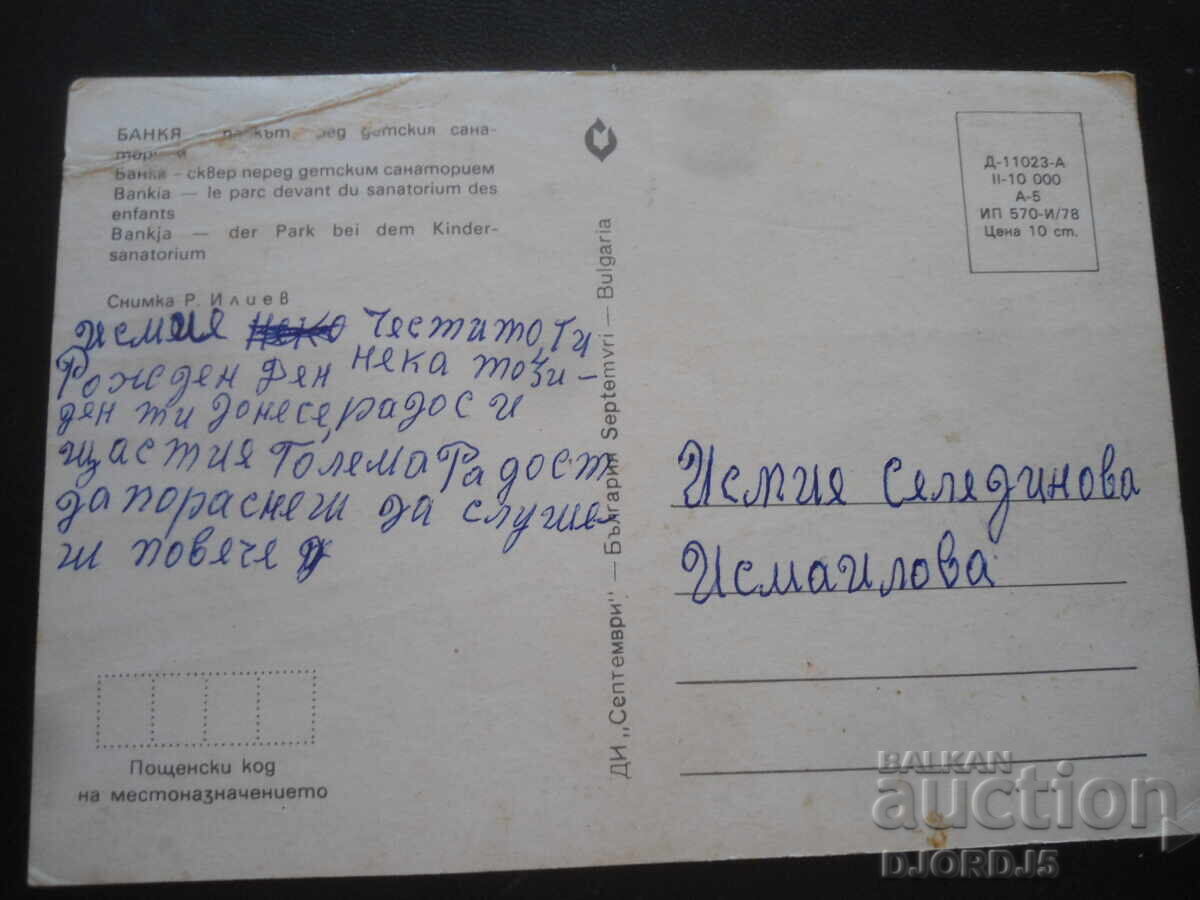 БАНКЯ — паркът пред детския сана-
ториум
Банкя - сквер перед детским санаторием
Bankia — le parc devant du sanatorium des
enfants
Bankja — der Park bei dem Kinder-
sanatorium
Снимка Р. Илиев
Исмия Честито Ти
Рожден Ден нека този-
ден ти донесе радос и
щастия Голема Радост
да пораснеш да слуше-
ш повече
Пощенски код
на местоназначението
ДИ „Септември" — България Septemvri — Bulgaria
Д-11023-А
II-10 000
А-5
ИП 570-И/78
Цена 10 ст.
Исмие Селединова
Исмаилова
BALKAN
auction
DJORDJ5